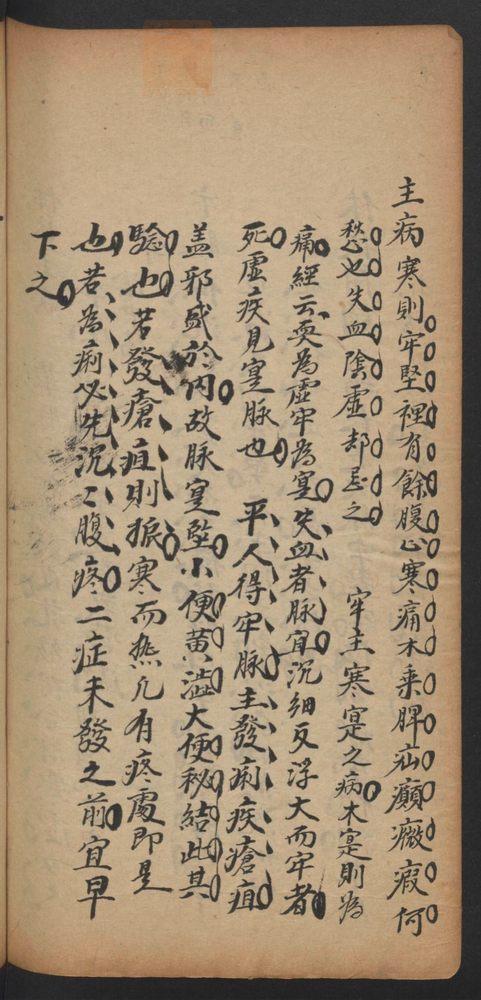 主病寒則牢堅裡有餘腹心寒痛木乘脾疝癲癥瘕何
愁也失血陰虛却忌之　牢主寒寔之病木寔則為
痛經云耎為虛牢為寔失血者脉宜沉細反浮大而牢者
死虛疾見寔脉也　平人得牢脉主發痢疾瘡疽
盖邪盛於內故脉寔堅小便黄澁大便秘結此其
驗也若發瘡疽則振寒而熱凡有疼處即是
也若為痢必先沉々腹疼二症未發之前宜早
下之